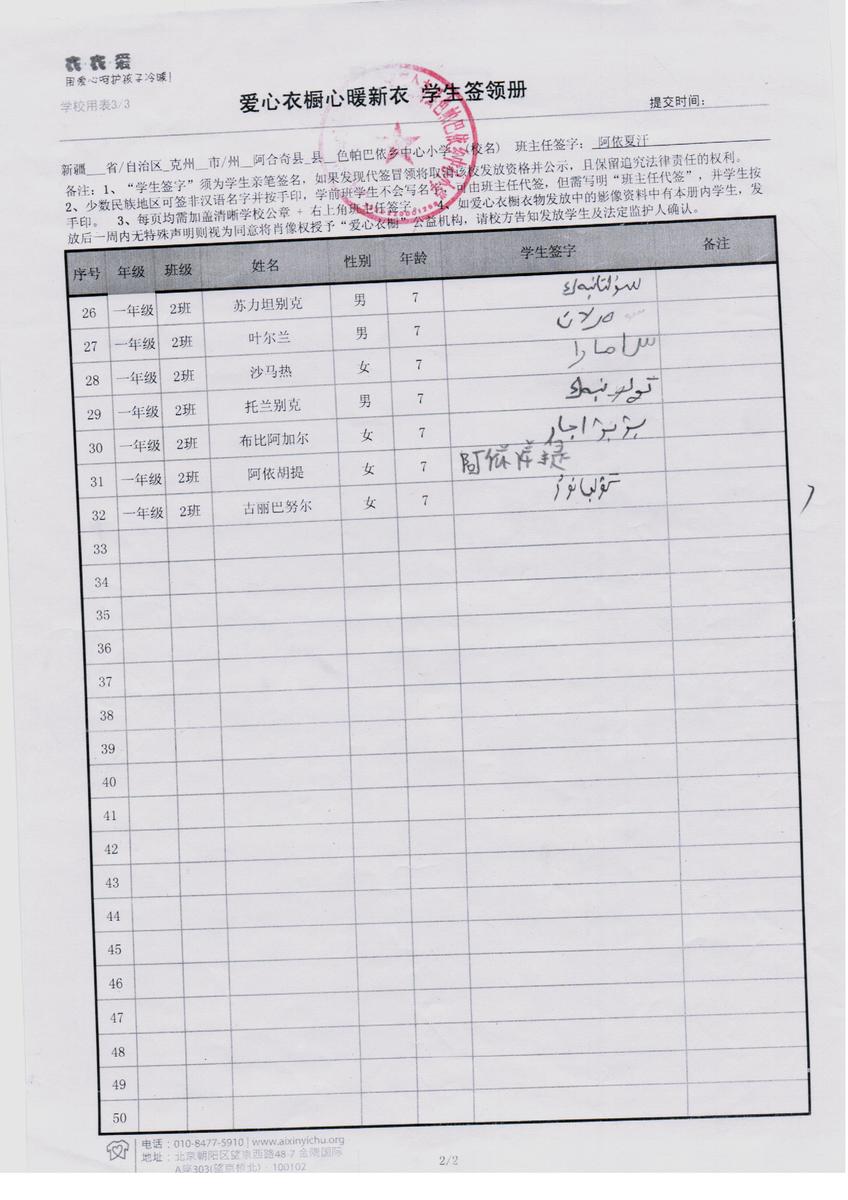 衣·衣·爱
用爱心呵护孩子冷暖!
学校用表3/3
爱心衣橱心暖新衣 学生签领册
提交时间:
新疆___省/自治区_克州__市/州__阿合奇县_县__色帕巴依乡中心小学__(校名) 班主任签字: 阿依夏汗
备注:1、“学生签字”须为学生亲笔签名,如果发现代签冒领将取消该校发放资格并公示,且保留追究法律责任的权利。
2、少数民族地区可签非汉语名字并按手印,学前班学生不会写名字,可由班主任代签,但需写明“班主任代签”,并学生按
手印。 3、每页均需加盖清晰学校公章 + 右上角班主任签字。 4、如爱心衣橱衣物发放中的影像资料中有本册内学生,发
放后一周内无特殊声明则视为同意将肖像权授予“爱心衣橱”公益机构,请校方告知发放学生及法定监护人确认。
序号 年级 班级 姓名 性别 年龄 学生签字 备注
26 一年级 2班 苏力坦别克 男 7 سۇلتانبەك
27 一年级 2班 叶尔兰 男 7
28 一年级 2班 沙马热 女 7 سامارا
29 一年级 2班 托兰别克 男 7
30 一年级 2班 布比阿加尔 女 7
31 一年级 2班 阿依胡提 女 7
32 一年级 2班 古丽巴努尔 女 7
33
34
35
36
37
38
39
40
41
42
43
44
45
46
47
48
49
50
电话:010-8477-5910 | www.aixinyichu.org
地址:北京朝阳区望京西路48-7 金隅国际
A座303(望京桥北)· 100102
2/2